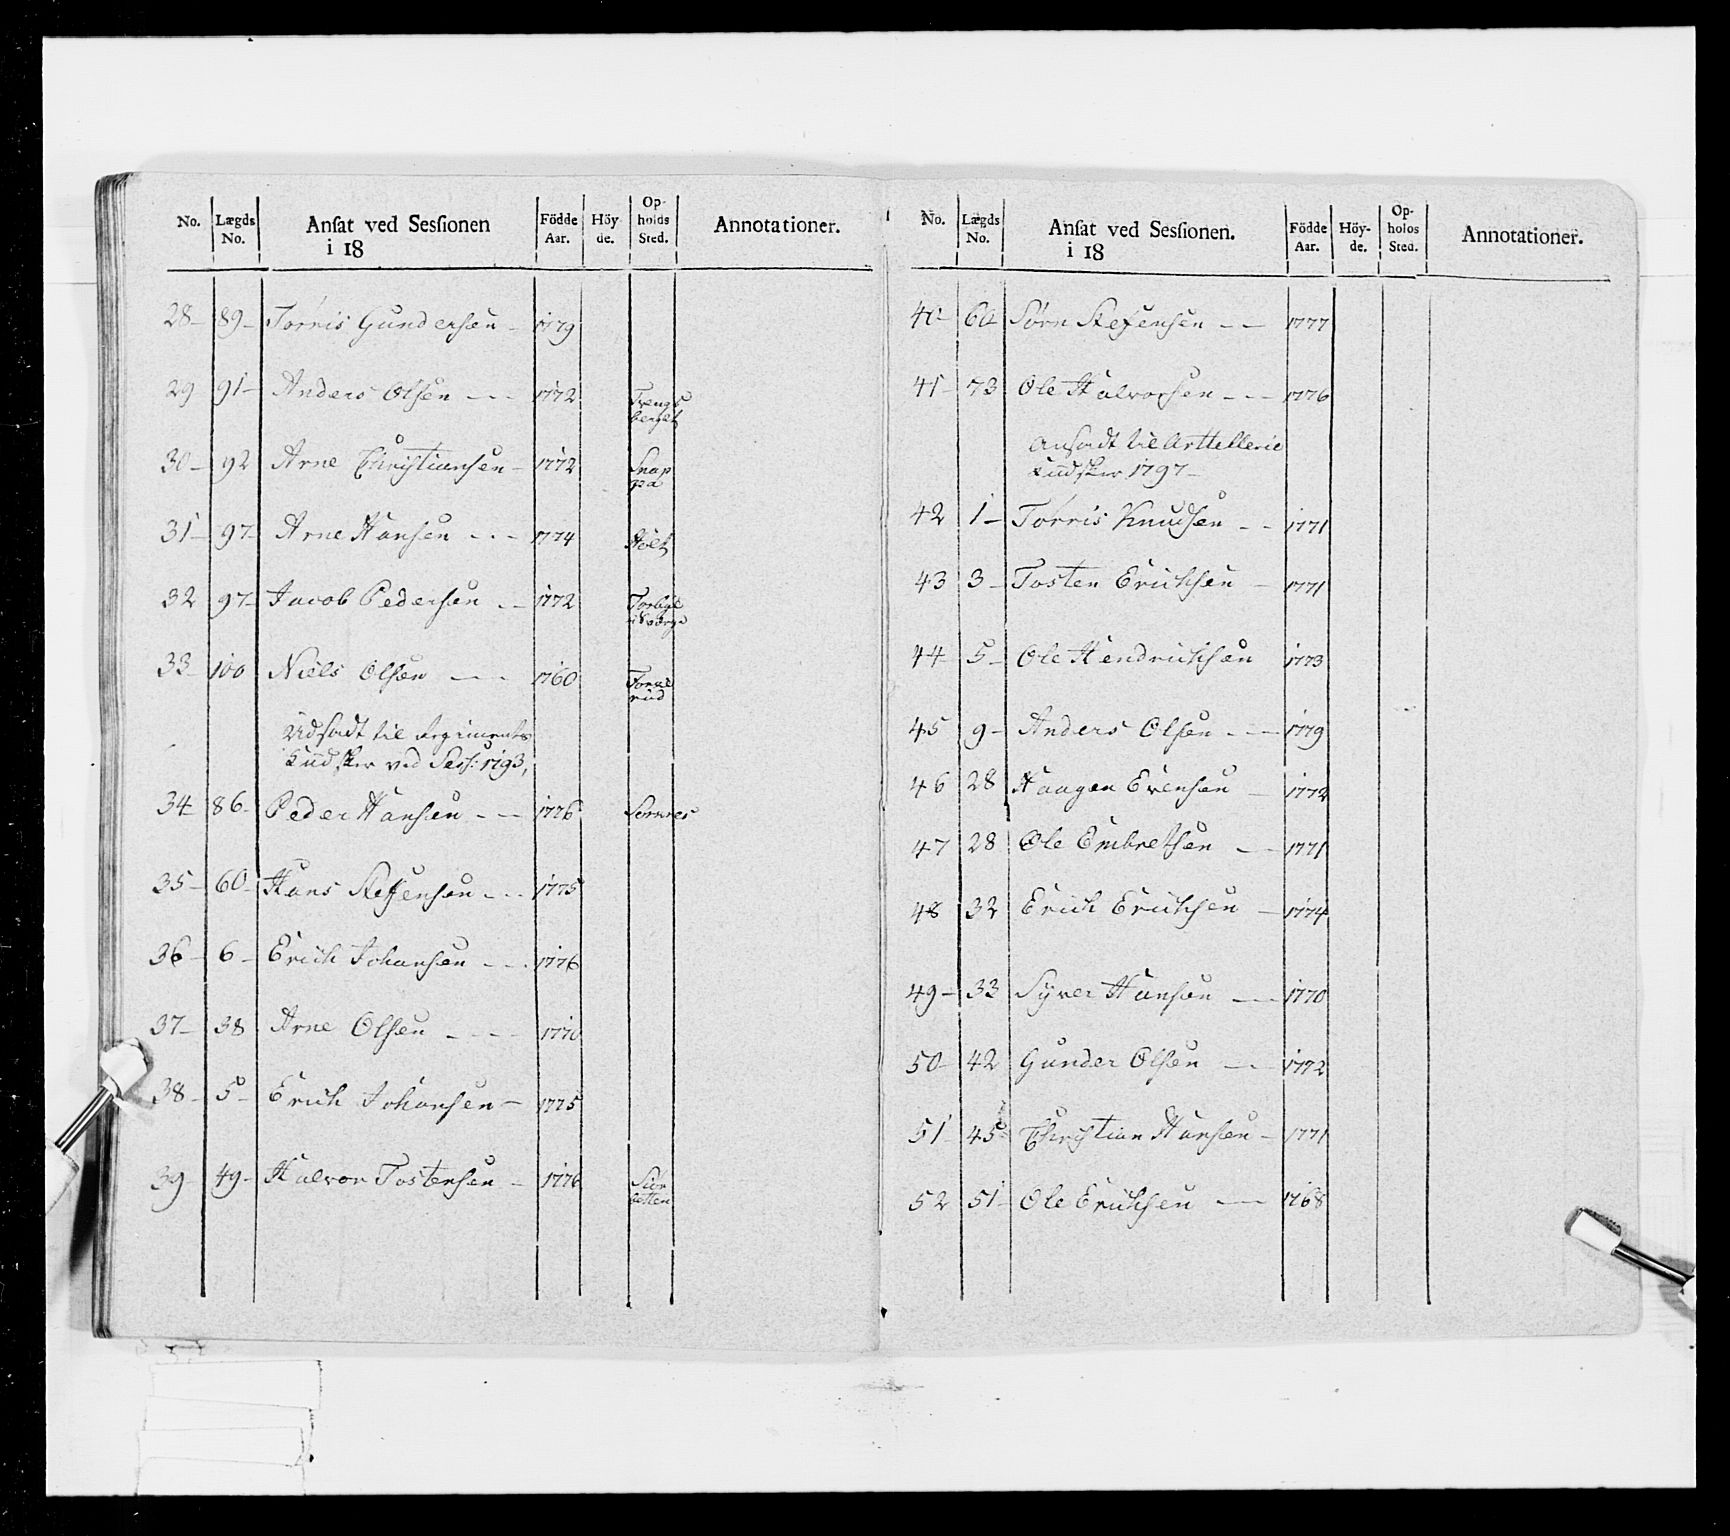 No. Lægds No. Ansat ved Sessionen i 18 Födde Aar. Höy de. Op- holds Sted. Annotationer.
28 89 Torris Gundersen 1779
29 91 Anders Olsen 1772 Trengs berget
30 92 Arne Christiansen 1772 Snap pa
31 97 Arne Hansen 1774 Holt
32 97 Jacob Pedersen 1772
33 100 Niels Olsen 1760
Udsadt til Regiments
Kudsker ved Sess: 1793,
34 86 Peder Hansen 1776
35 60 Hans Steffensen 1775
36 6 Erich Johansen 1776
37 38 Arne Olsen 1770
38 5 Erich Johansen 1775
39 49 Halvor Tostensen 1776
No. Lægds No. Ansat ved Sessionen. i 18 Födde Aar. Höy- de. Op- holds Sted. Annotationer.
40 60 Sørn Stefensen 1777
41 73 Ole Halvorsen 1776
Ansadt til Arttellerie
Kudsker 1797
42 1 Torris Knudsen 1771
43 3 Tosten Erichsen 1771
44 5 Ole Hendrichsen 1773
45 9 Anders Olsen 1779
46 28 Haagen Evensen 1772
47 28 Ole Embretsen 1771
48 32 Erich Erichsen 1774
49 33 Syver Hansen 1770
50 42 Gunder Olsen 1772
51 45 Christian Hansen 1771
52 51 Ole Erichsen 1768